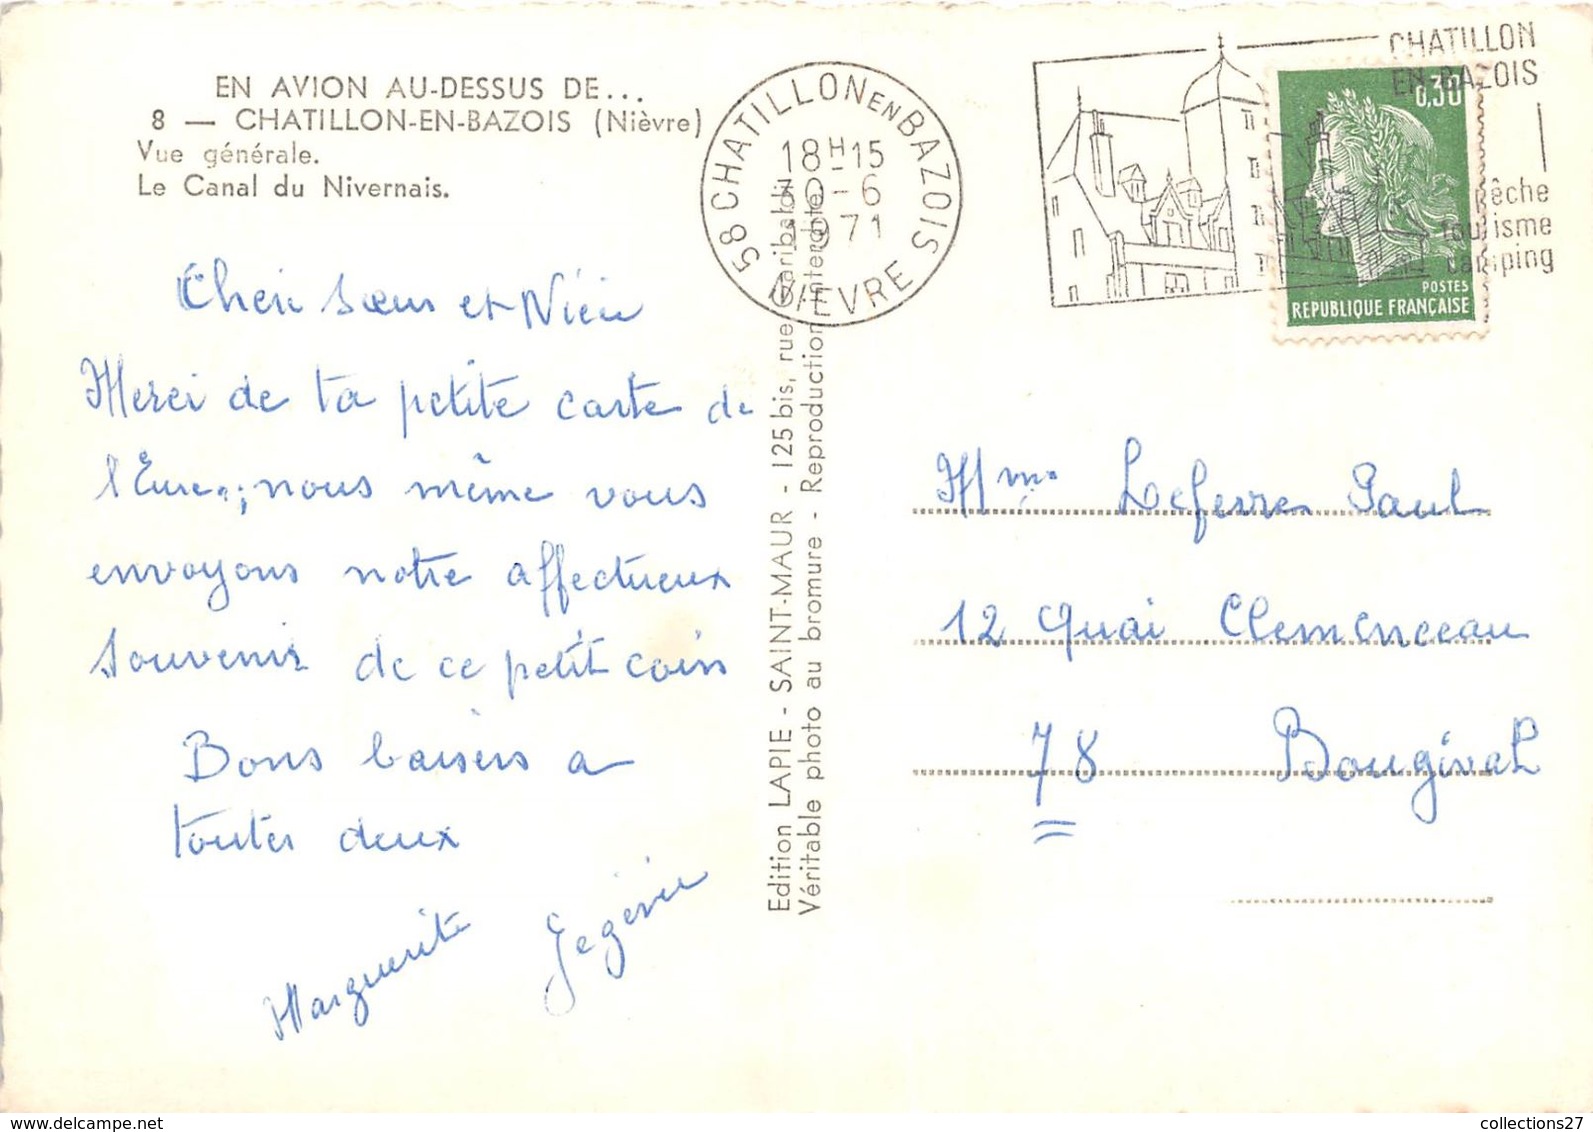 EN AVION AU-DESSUS DE...
8 — CHATILLON-EN-BAZOIS (Nièvre)
Vue générale.
Le Canal du Nivernais.
58 CHATILLON EN BAZOIS
18H15
30-6
1971
NIEVRE
CHATILLON
EN-BAZOIS
pêche
tourisme
camping
0,30
POSTES
REPUBLIQUE FRANÇAISE
Cher sœur et
Merci de ta petite carte de
l'Eure; nous même vous
envoyons notre affectueux
souvenir de ce petit coin
Bons baisers a
toutes deux
Marguerite
Edition LAPIE - SAINT-MAUR - 125 bis, rue Garibaldi
Véritable photo au bromure - Reproduction interdite
Mme Lefevre Paul
12 Quai Clemenceau
78 Bougival
collections27